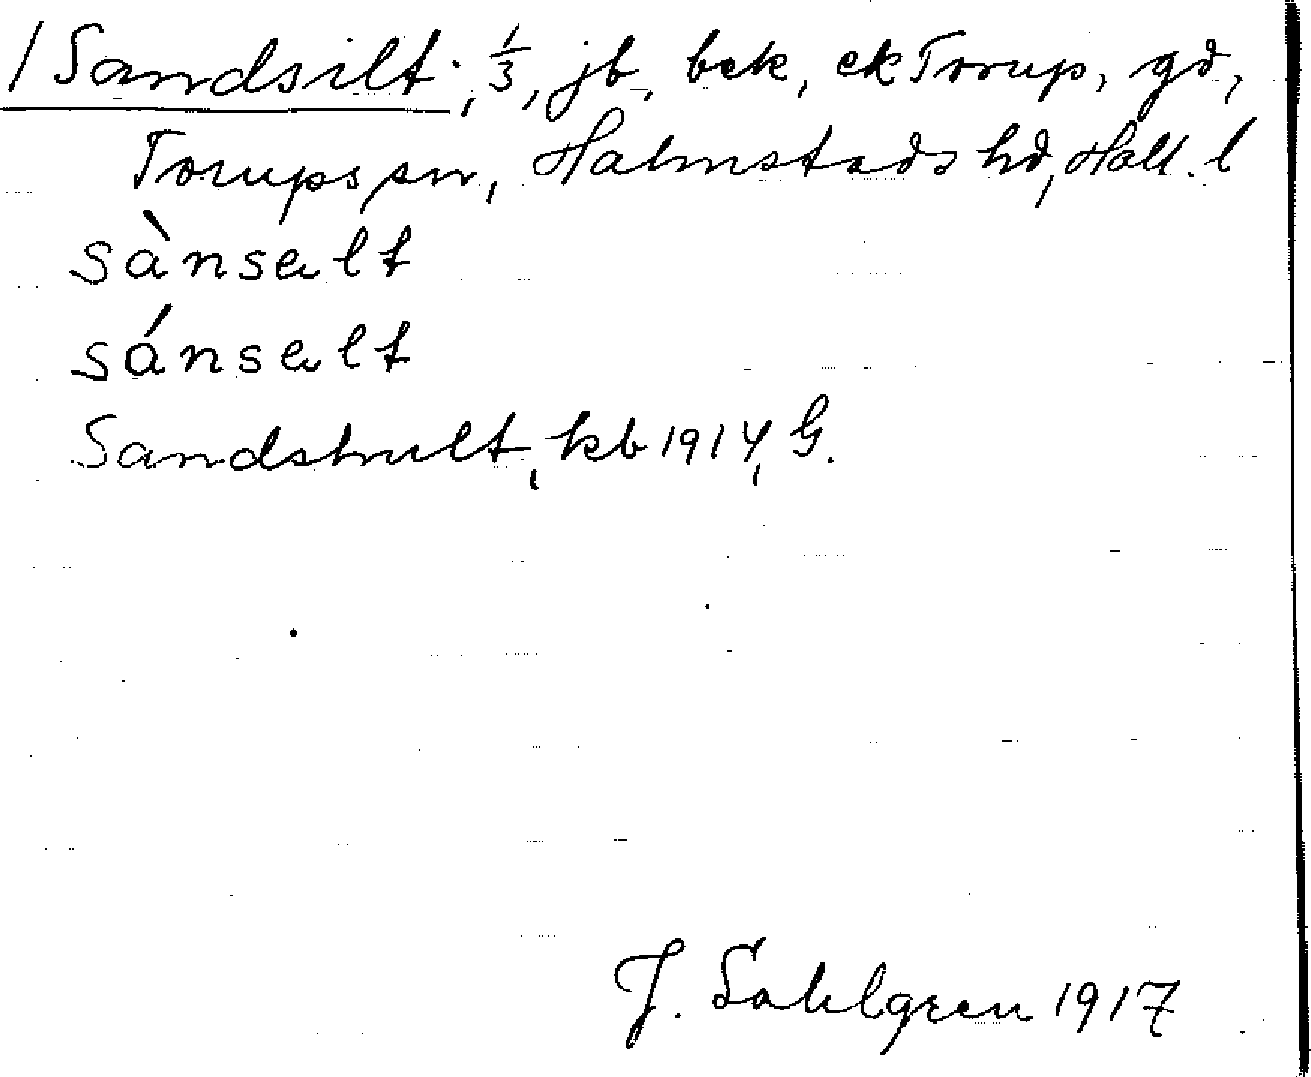 / Sandsilt, 1/3, jb, bek, ek Torup, gd,
Torups sn, Halmstads hd, Hall. l
sànsalt
sánsalt
Sandshult, kb 1914, G.
J. Sahlgren 1917